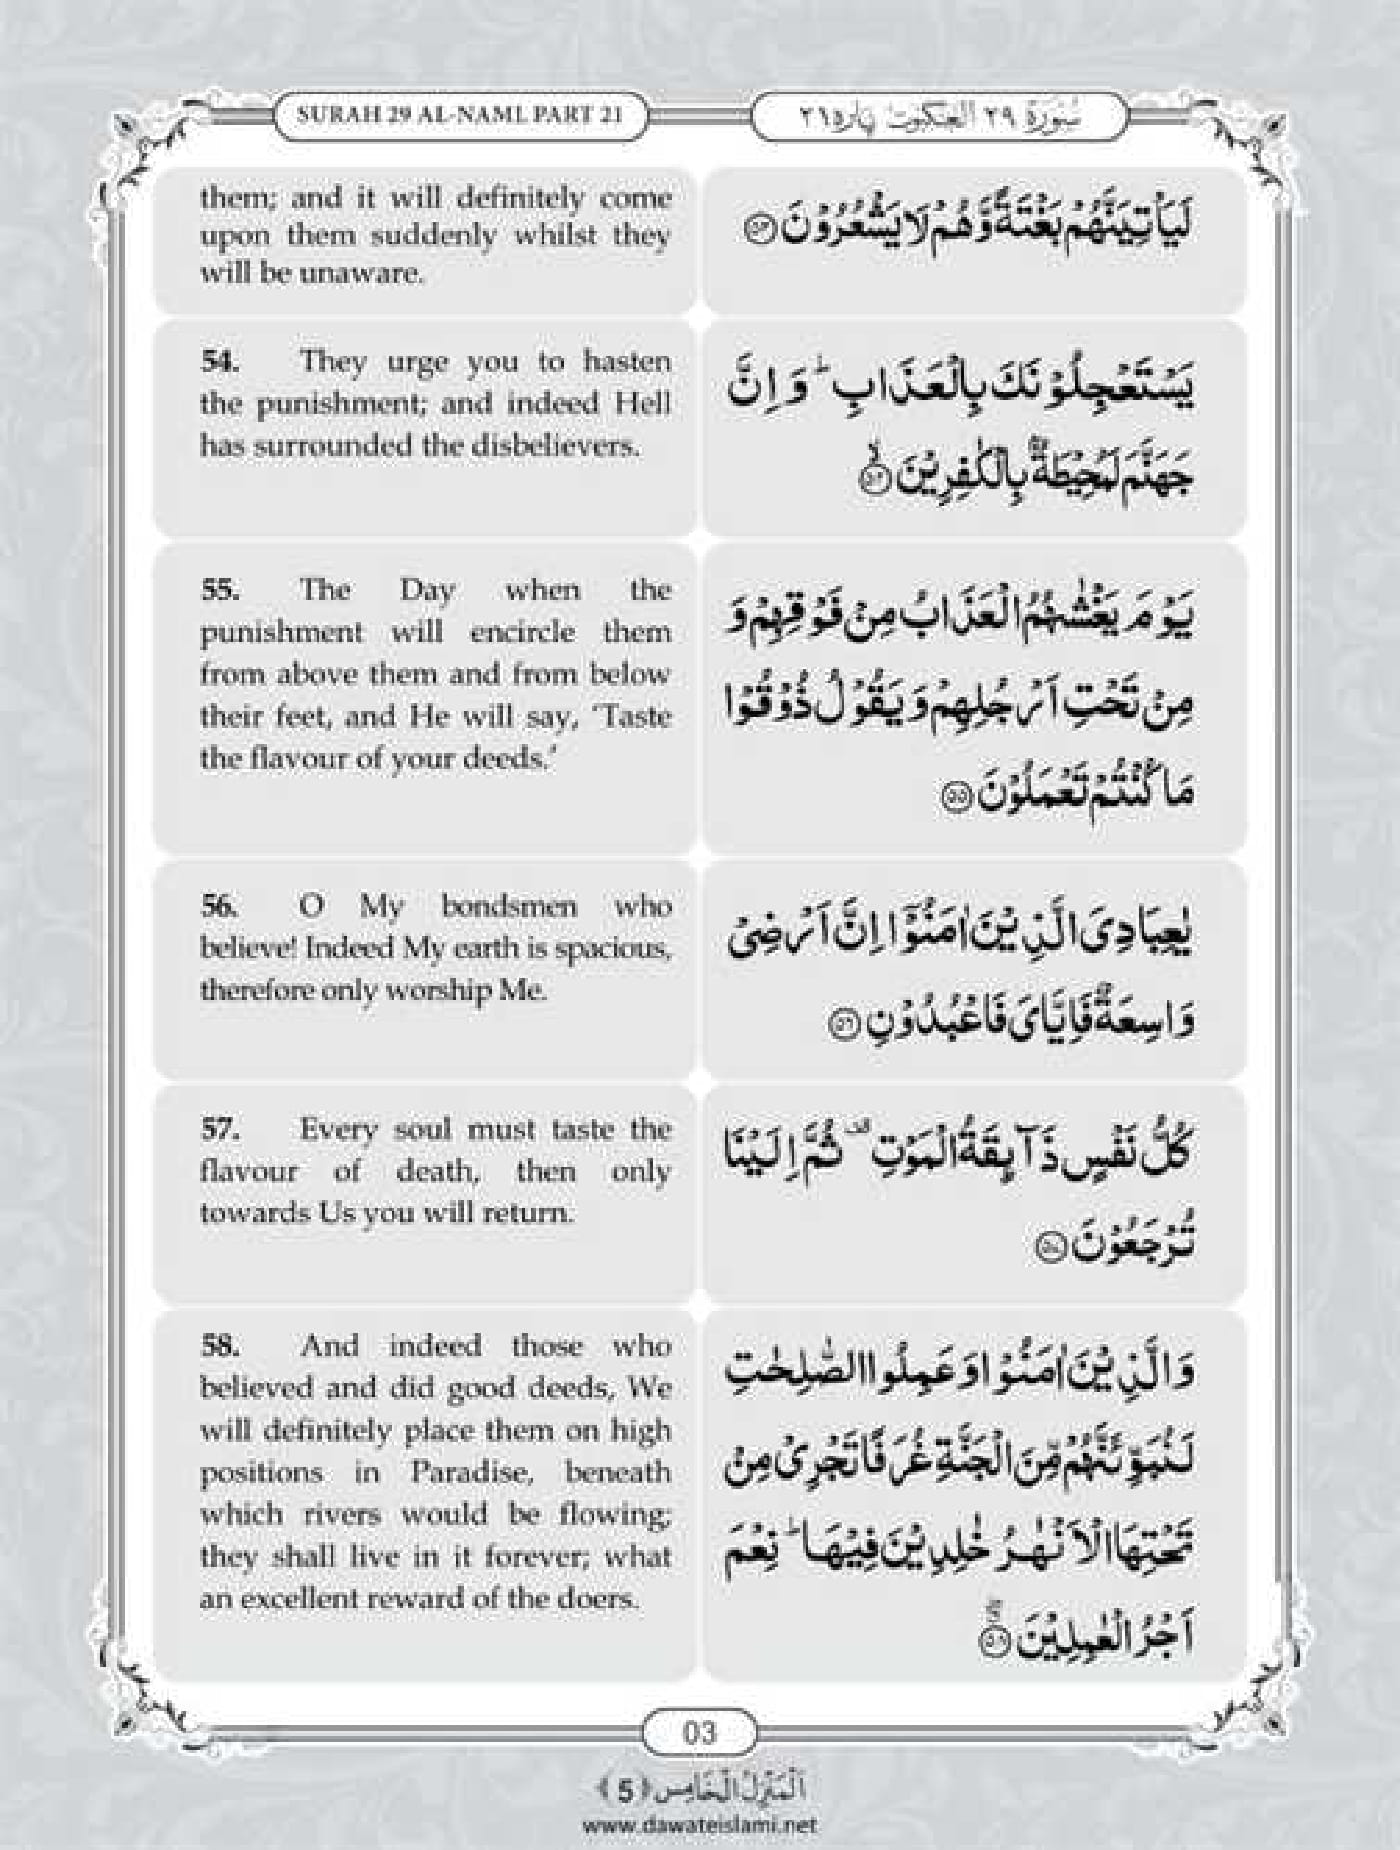 SURAH 29 AL-NAML PART 21
سُوۡرَة ٢٩ العنكبوت پاره ٢١
them; and it will definitely come
upon them suddenly whilst they
will be unaware.
لَيَاۡتِيَنَّهُمۡ بَغۡتَةً وَّهُمۡ لَا يَشۡعُرُوۡنَ ۝۵۳
54. They urge you to hasten
the punishment; and indeed Hell
has surrounded the disbelievers.
يَسۡتَعۡجِلُوۡنَكَ بِالۡعَذَابِ ؕ وَ اِنَّ
جَهَنَّمَ لَمُحِيۡطَةٌۢ بِالۡكٰفِرِيۡنَ ۝۵۴ۙ
55. The Day when the
punishment will encircle them
from above them and from below
their feet, and He will say, ‘Taste
the flavour of your deeds.’
يَوۡمَ يَغۡشٰىهُمُ الۡعَذَابُ مِنۡ فَوۡقِهِمۡ وَ
مِنۡ تَحۡتِ اَرۡجُلِهِمۡ وَ يَقُوۡلُ ذُوۡقُوۡا
مَا كُنۡتُمۡ تَعۡمَلُوۡنَ ۝۵۵
56. O My bondsmen who
believe! Indeed My earth is spacious,
therefore only worship Me.
يٰعِبَادِىَ الَّذِيۡنَ اٰمَنُوۡۤا اِنَّ اَرۡضِىۡ
وَاسِعَةٌ فَاِيَّاىَ فَاعۡبُدُوۡنِ ۝۵۶
57. Every soul must taste the
flavour of death, then only
towards Us you will return.
كُلُّ نَفۡسٍ ذَآىِٕقَةُ الۡمَوۡتِ ۟ ثُمَّ اِلَيۡنَا
تُرۡجَعُوۡنَ ۝۵۷
58. And indeed those who
believed and did good deeds, We
will definitely place them on high
positions in Paradise, beneath
which rivers would be flowing;
they shall live in it forever; what
an excellent reward of the doers.
وَالَّذِيۡنَ اٰمَنُوۡا وَ عَمِلُوا الصّٰلِحٰتِ
لَنُبَوِّئَنَّهُمۡ مِّنَ الۡجَنَّةِ غُرَفًا تَجۡرِىۡ مِنۡ
تَحۡتِهَا الۡاَنۡهٰرُ خٰلِدِيۡنَ فِيۡهَا ؕ نِعۡمَ
اَجۡرُ الۡعٰمِلِيۡنَ ۝۵۸
03
اَلۡمَنۡزِلُ الۡخَامِس ﴿5﴾
www.dawateislami.net